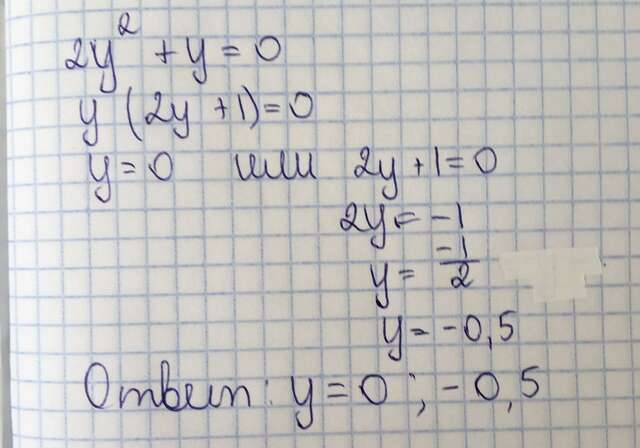 2y² + y = 0
y (2y + 1) = 0
y = 0 или 2y + 1 = 0
2y = -1
y = -1/2
y = -0,5
Ответ: y = 0 ; -0,5